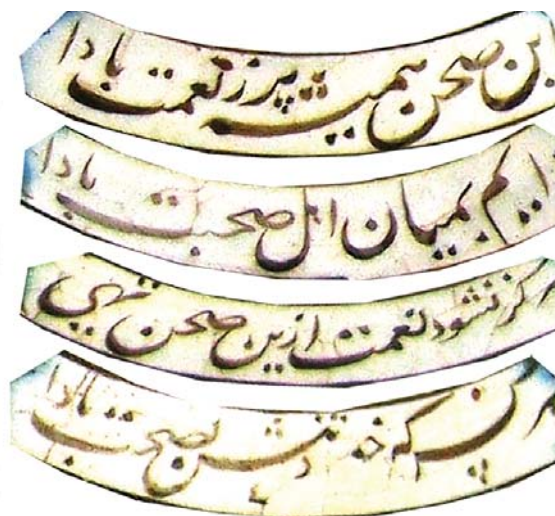 این صحن همیشه پر ز نعمت بادا
دایم بمیان اهل صحبت بادا
هرگز نشود نعمت ازین صحن تهی
که خورد تنش بصحت بادا